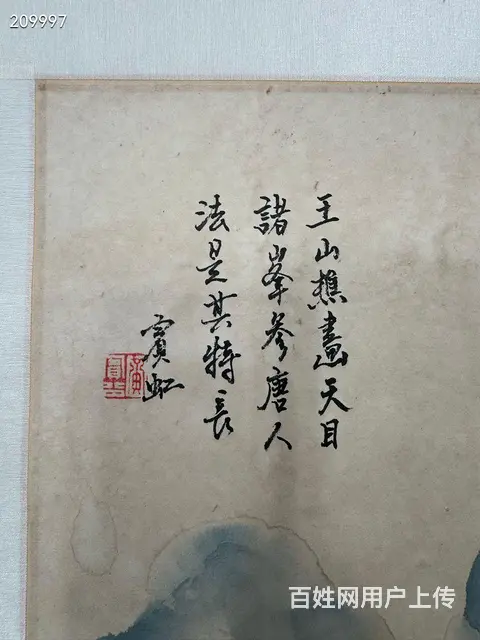 209997
王山樵畫天目
諸峯參唐人
法是其特長
賓虹
百姓网用户上传